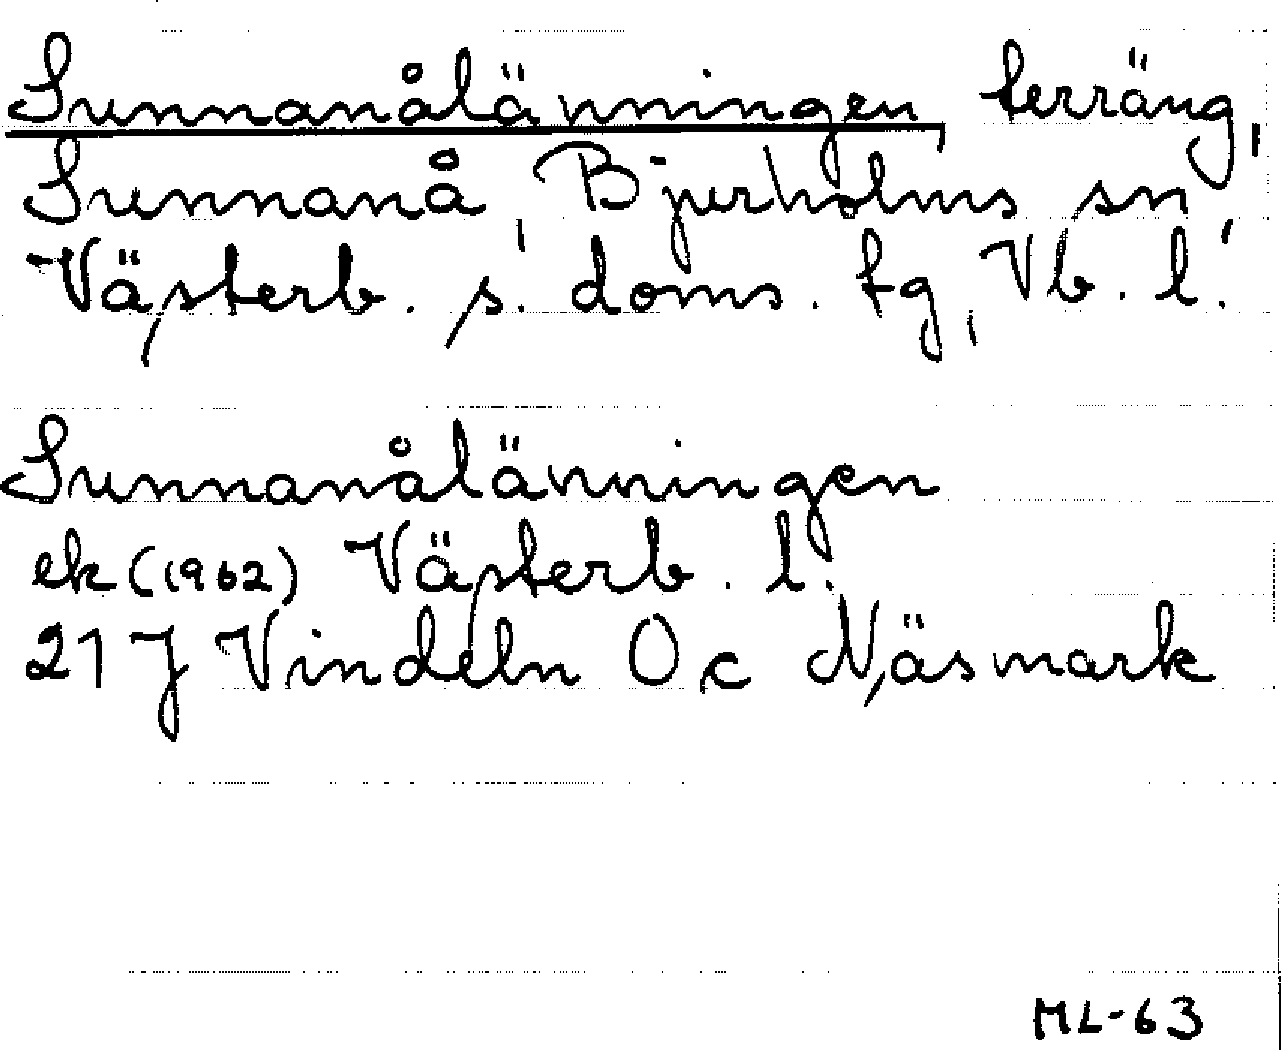 Sunnanålänningen, terräng,
Sunnanå, Bjurholms sn,
Västerb. s. doms. tg, Vb. l.
Sunnanålänningen
ek (1962) Västerb. l.
21 J Vindeln 0 c Näsmark
ML-63